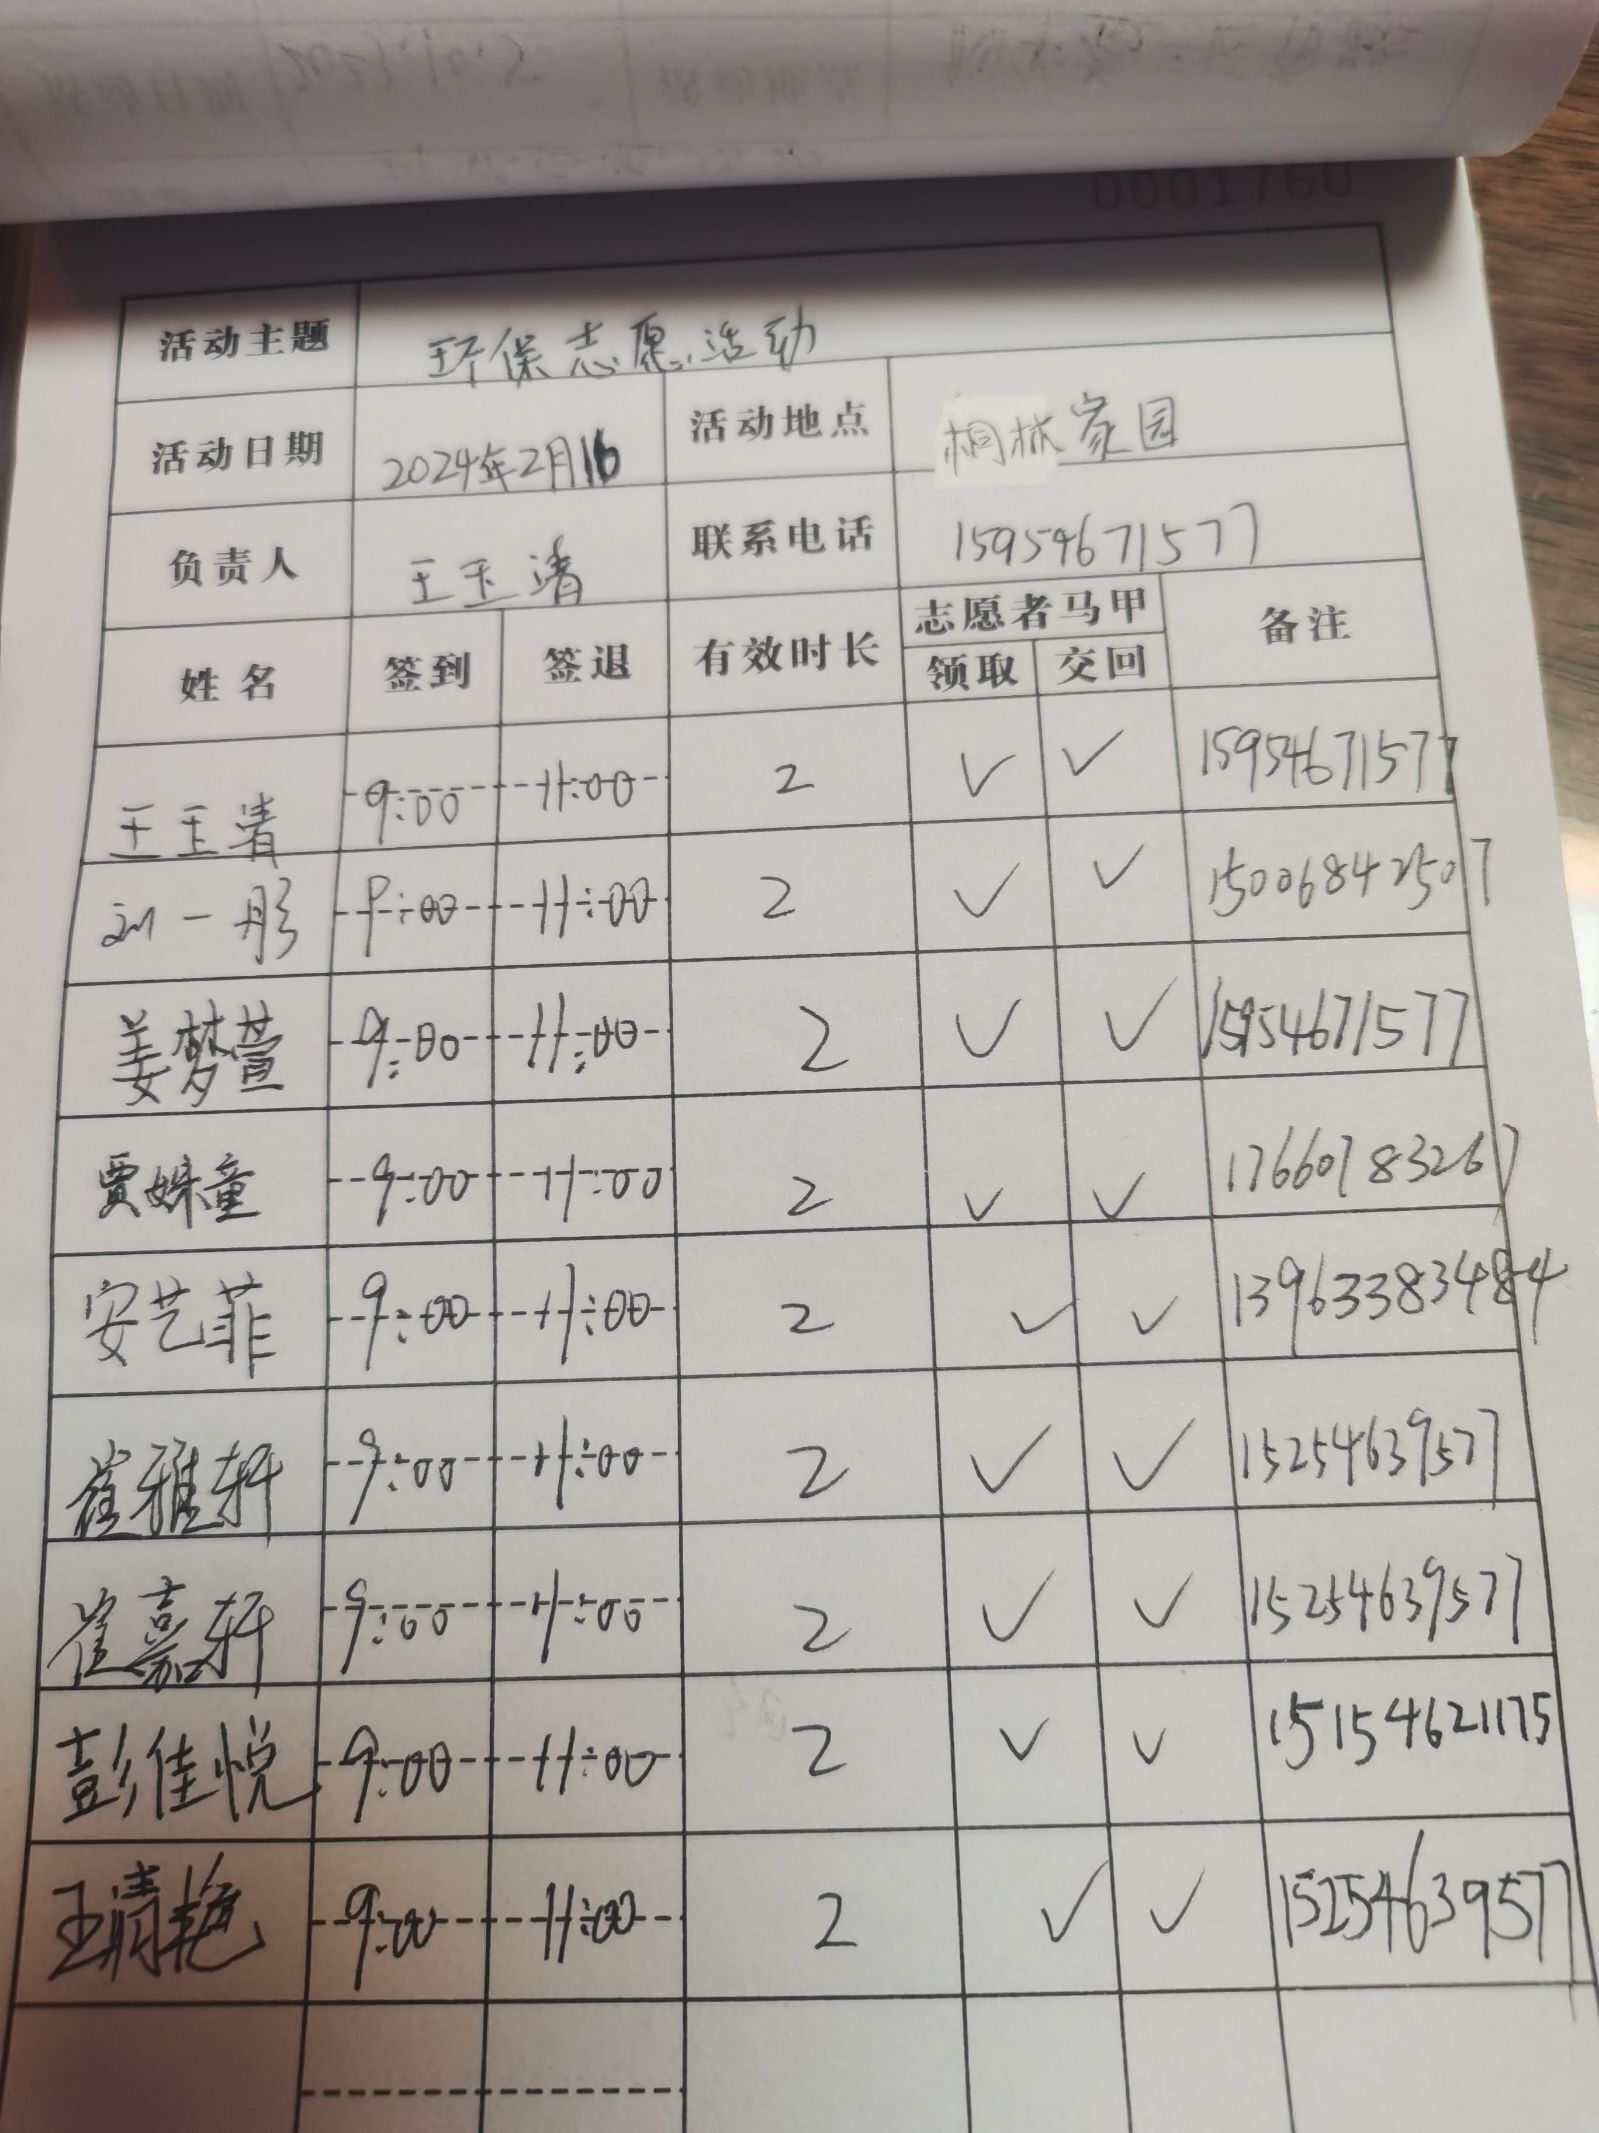 0001760
活动主题 环保志愿活动
活动日期 2024年2月16 活动地点 桐林家园
负责人 王玉清 联系电话 15954671577
姓名 签到 签退 有效时长 志愿者马甲 备注
领取 交回
王玉清 9:00 11:00 2 ✓ ✓ 15954671577
刘一彤 9:00 11:00 2 ✓ ✓ 15006842507
姜梦萱 9:00 11:00 2 ✓ ✓ 15954671577
贾姝童 9:00 11:00 2 ✓ ✓ 17660783267
安艺菲 9:00 11:00 2 ✓ ✓ 13963383484
崔雅轩 9:00 11:00 2 ✓ ✓ 15254639577
崔嘉轩 9:00 11:00 2 ✓ ✓ 15254639577
彭佳悦 9:00 11:00 2 ✓ ✓ 15154621175
王清艳 9:00 11:00 2 ✓ ✓ 15254639577